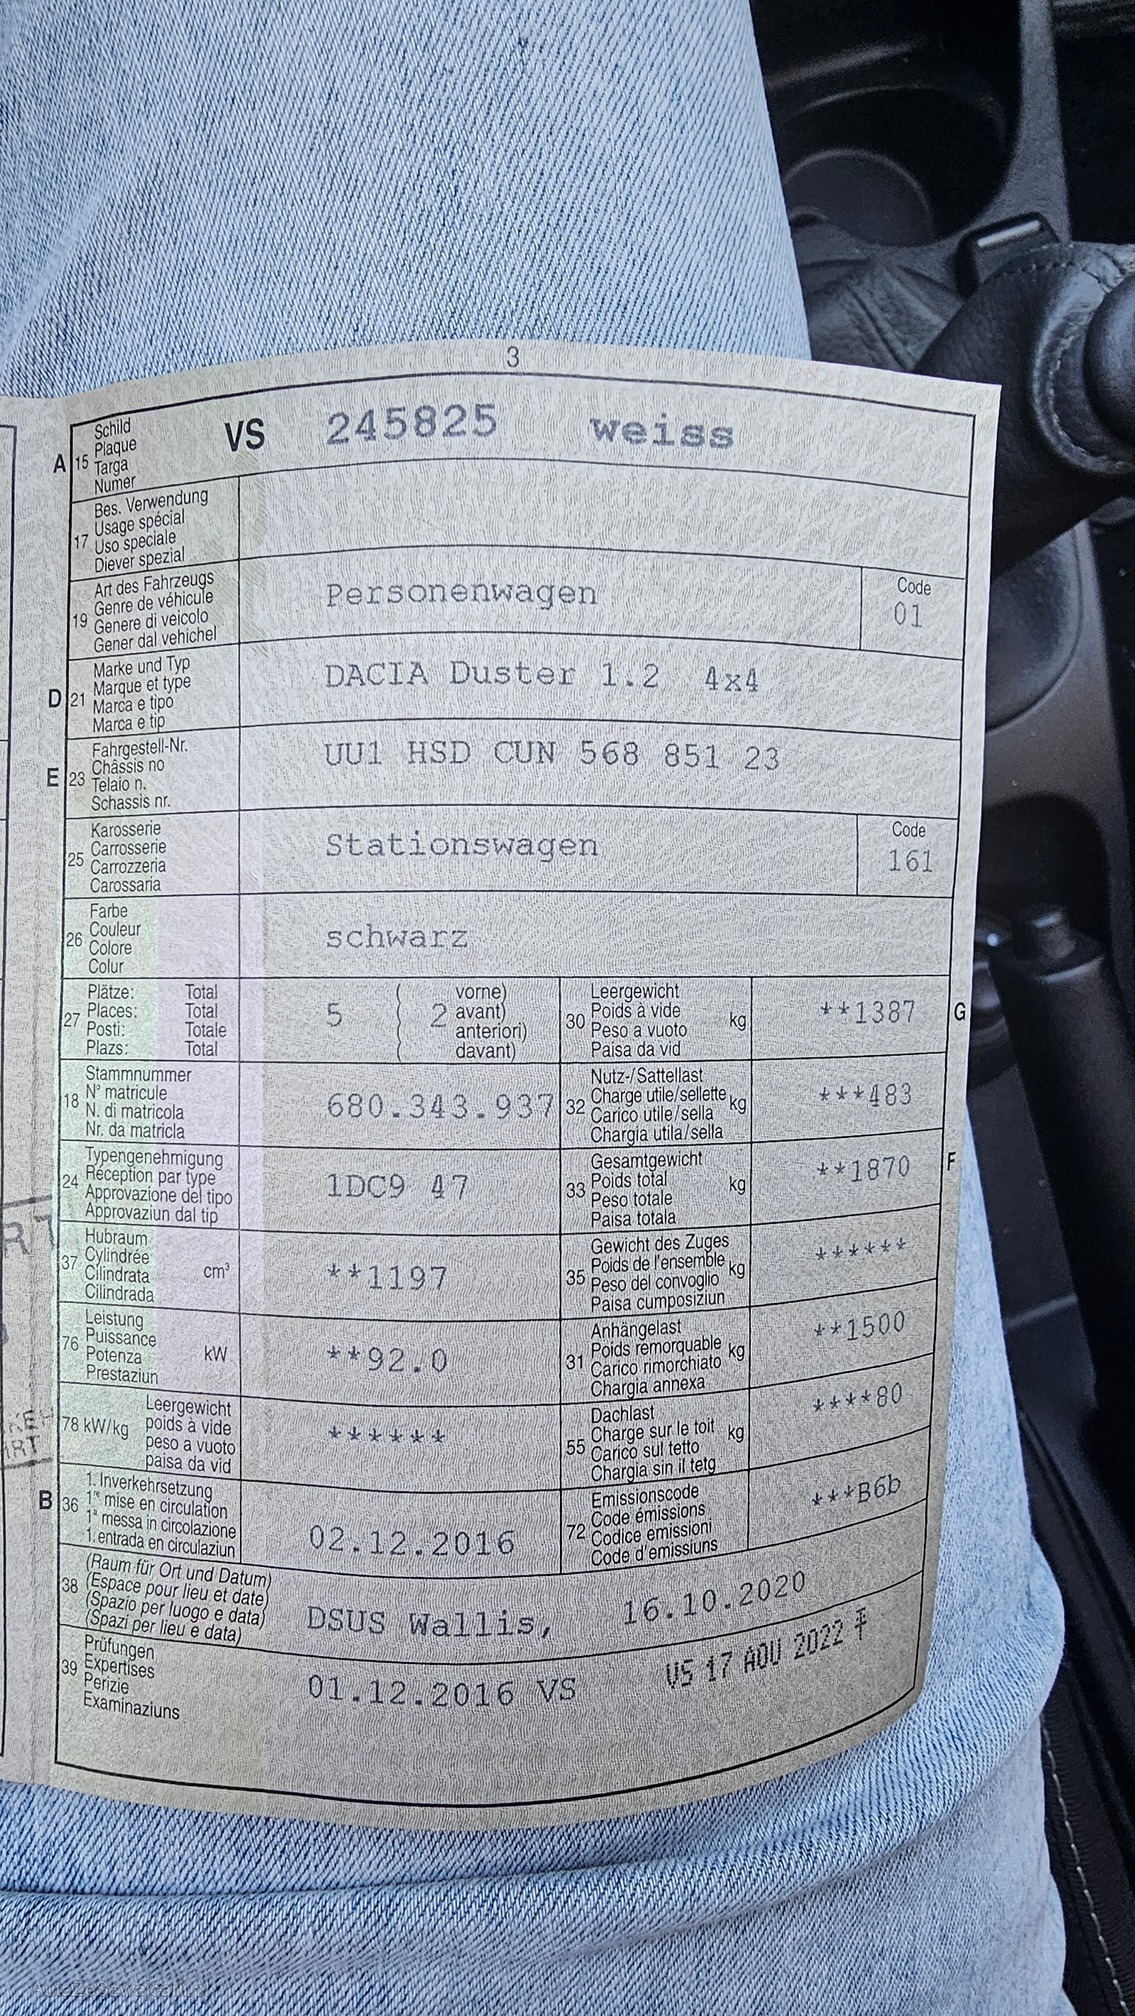 3
A 15 Schild VS 245825 weiss
Plaque
Targa
Numer
17 Bes. Verwendung
Usage spécial
Uso speciale
Diever spezial
19 Art des Fahrzeugs Personenwagen Code
Genre de véhicule 01
Genere di veicolo
Gener dal vehichel
D 21 Marke und Typ DACIA Duster 1.2 4x4
Marque et type
Marca e tipo
Marca e tip
E 23 Fahrgestell-Nr. UU1 HSD CUN 568 851 23
Châssis no
Telaio n.
Schassis nr.
25 Karosserie Stationswagen Code
Carrosserie 161
Carrozzeria
Carossaria
26 Farbe schwarz
Couleur
Colore
Colur
27 Plätze: Total 5 ( 2 vorne)
Places: Total avant)
Posti: Totale anteriori)
Plazs: Total davant)
30 Leergewicht **1387 G
Poids à vide
Peso a vuoto kg
Paisa da vid
18 Stammnummer 680.343.937
N° matricule
N. di matricola
Nr. da matricla
32 Nutz-/Sattellast ***483
Charge utile/sellette kg
Carico utile/sella
Chargia utila/sella
24 Typengenehmigung 1DC9 47
Réception par type
Approvazione del tipo
Approvaziun dal tip
33 Gesamtgewicht **1870 F
Poids total kg
Peso totale
Paisa totala
37 Hubraum **1197
Cylindrée
Cilindrata cm³
Cilindrada
35 Gewicht des Zuges ******
Poids de l'ensemble kg
Peso del convoglio
Paisa cumposiziun
76 Leistung **92.0
Puissance
Potenza kW
Prestaziun
31 Anhängelast **1500
Poids remorquable kg
Carico rimorchiato
Chargia annexa
78 kW/kg Leergewicht ******
poids à vide
peso a vuoto
paisa da vid
55 Dachlast ****80
Charge sur le toit kg
Carico sul tetto
Chargia sin il tetg
B 36 1. Inverkehrsetzung 02.12.2016
1re mise en circulation
1a messa in circolazione
1. entrada en circulaziun
72 Emissionscode ***B6b
Code émissions
Codice emissioni
Code d'emissiuns
38 (Raum für Ort und Datum) DSUS Wallis, 16.10.2020
(Espace pour lieu et date)
(Spazio per luogo e data)
(Spazi per lieu e data)
39 Prüfungen 01.12.2016 VS VS 17 AOU 2022
Expertises
Perizie
Examinaziuns